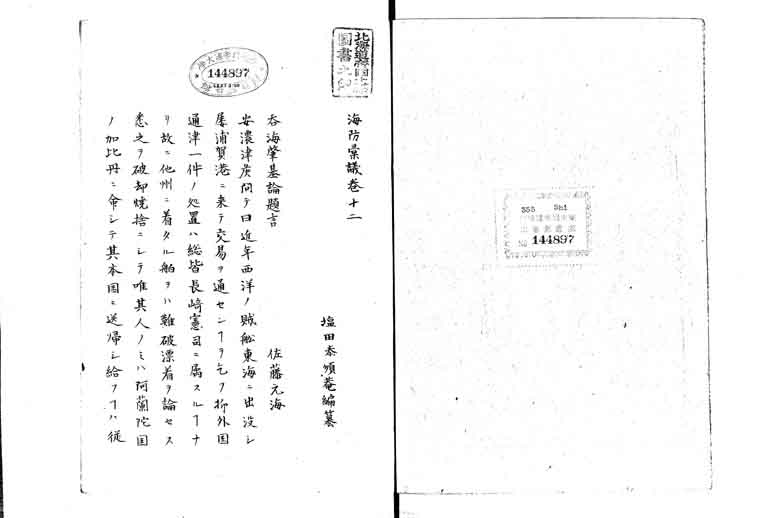 海防彙議巻十二
塩田泰順菴編纂
呑海肇基論題言
佐藤元海
安濃津矦問テ曰近年西洋ノ賊舩東海ニ出没シ
屢浦賀港ニ来テ交易ヲ通センヿヲ乞フ抑外国
通津一件ノ処置ハ総皆長崎憲司ニ属スルヿナ
リ故ニ他州ニ着タル舶ヲハ難破漂着ヲ論セス
悉之ヲ破却焼捨ニシテ唯其人ノミハ阿蘭陀国
ノ加比丹ニ命シテ其本国ニ送帰シ給フヿハ従
144897
355
144897